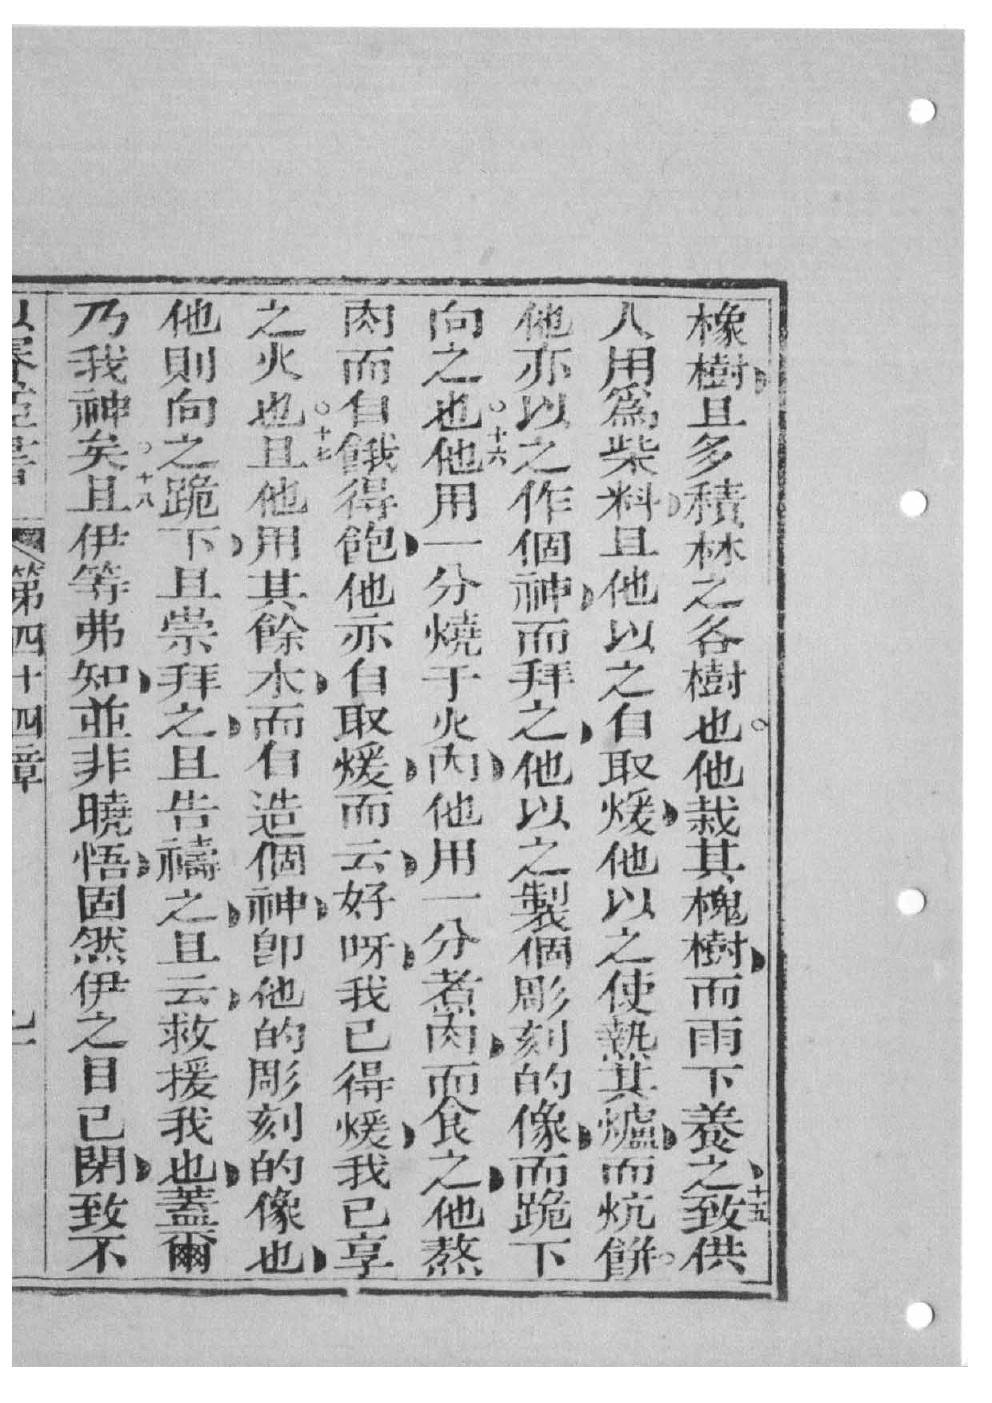 橡樹且多積林之各樹也。他栽其槐樹而雨下養之十五致供
人用爲柴料且他以之自取煖他以之使熱其爐而炕餅。
他亦以之作個神而拜之他以之製個彫刻的像而跪下
向之也。十六他用一分燒于火內他用一分煮肉而食之他熬
肉而自餓得飽他亦自取煖而云好呀我已得煖我已享
之火也。十七且他用其餘木而自造個神卽他的彫刻的像也
他則向之跪下且崇拜之且告禱之且云救援我也蓋爾
乃我神矣。十八且伊等弗知並非曉悟固然伊之目已閉致不
第四十四章